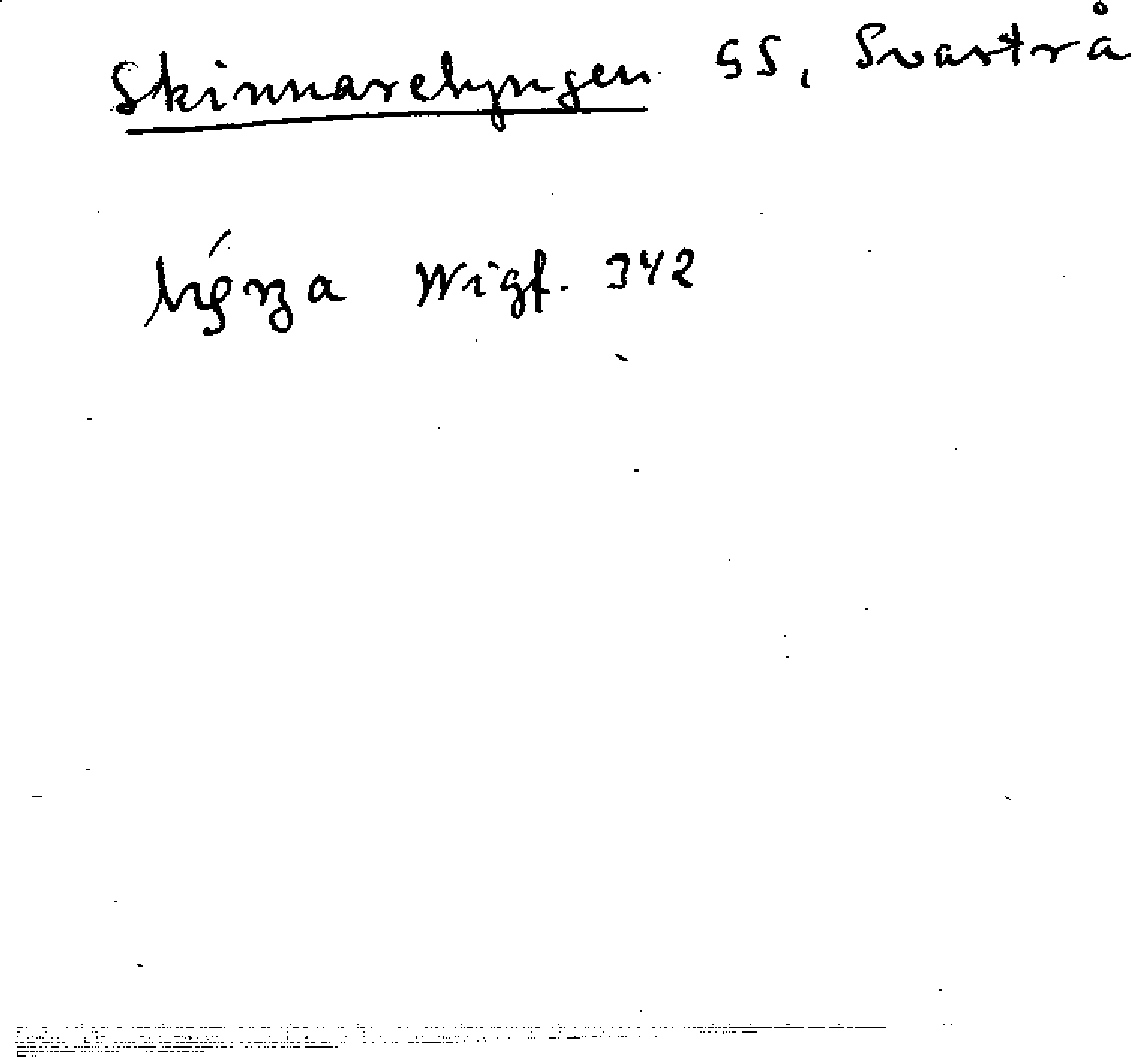 Skinnarelyngen SS, Svartrå
Wigf. 342